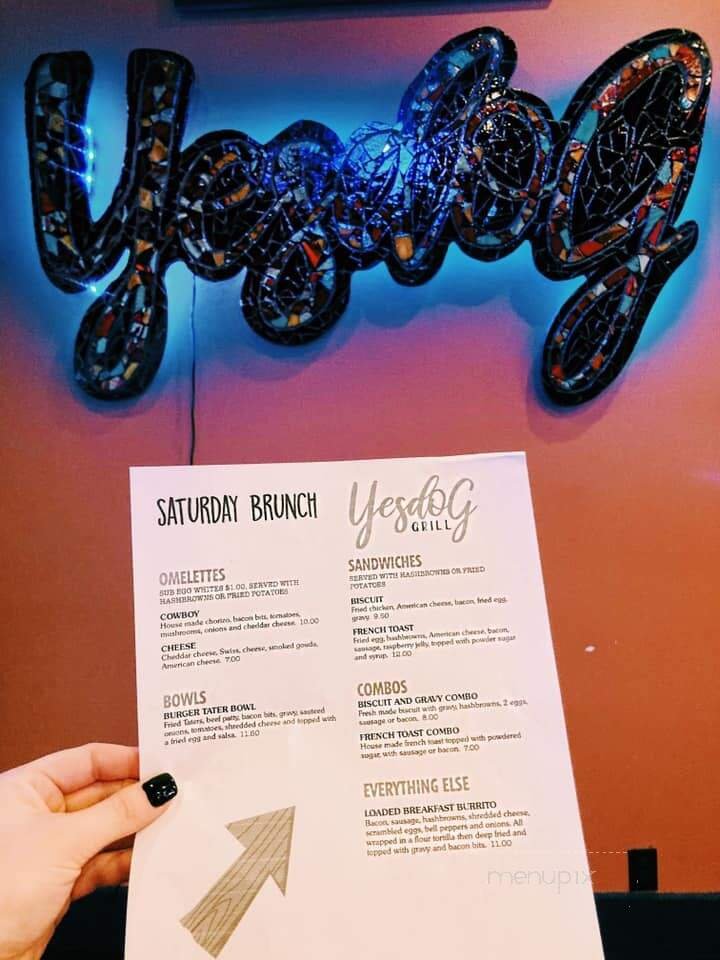 YesdoG
SATURDAY BRUNCH
YesdoG
GRILL
OMELETTES
SUB EGG WHITES $1.00, SERVED WITH
HASHBROWNS OR FRIED POTATOES
COWBOY
House made chorizo, bacon bits, tomatoes,
mushrooms, onions and cheddar cheese. 10.00
CHEESE
Cheddar cheese, Swiss, cheese, smoked gouda,
American cheese. 7.00
BOWLS
BURGER TATER BOWL
Fried Taters, beef patty, bacon bits, gravy, sauteed
onions, tomatoes, shredded cheese and topped with
a fried egg and salsa. 11.50
SANDWICHES
SERVED WITH HASHBROWNS OR FRIED
POTATOES
BISCUIT
Fried chicken, American cheese, bacon, fried egg,
gravy. 9.50
FRENCH TOAST
Fried egg, hashbrowns, American cheese, bacon,
sausage, raspberry jelly, topped with powder sugar
and syrup. 12.00
COMBOS
BISCUIT AND GRAVY COMBO
Fresh made biscuit with gravy, hashbrowns, 2 eggs,
sausage or bacon. 8.00
FRENCH TOAST COMBO
House made french toast topped with powdered
sugar, with sausage or bacon. 7.00
EVERYTHING ELSE
LOADED BREAKFAST BURRITO
Bacon, sausage, hashbrowns, shredded cheese,
scrambled eggs, bell peppers and onions. All
wrapped in a flour tortilla then deep fried and
topped with gravy and bacon bits. 11.00
menupix